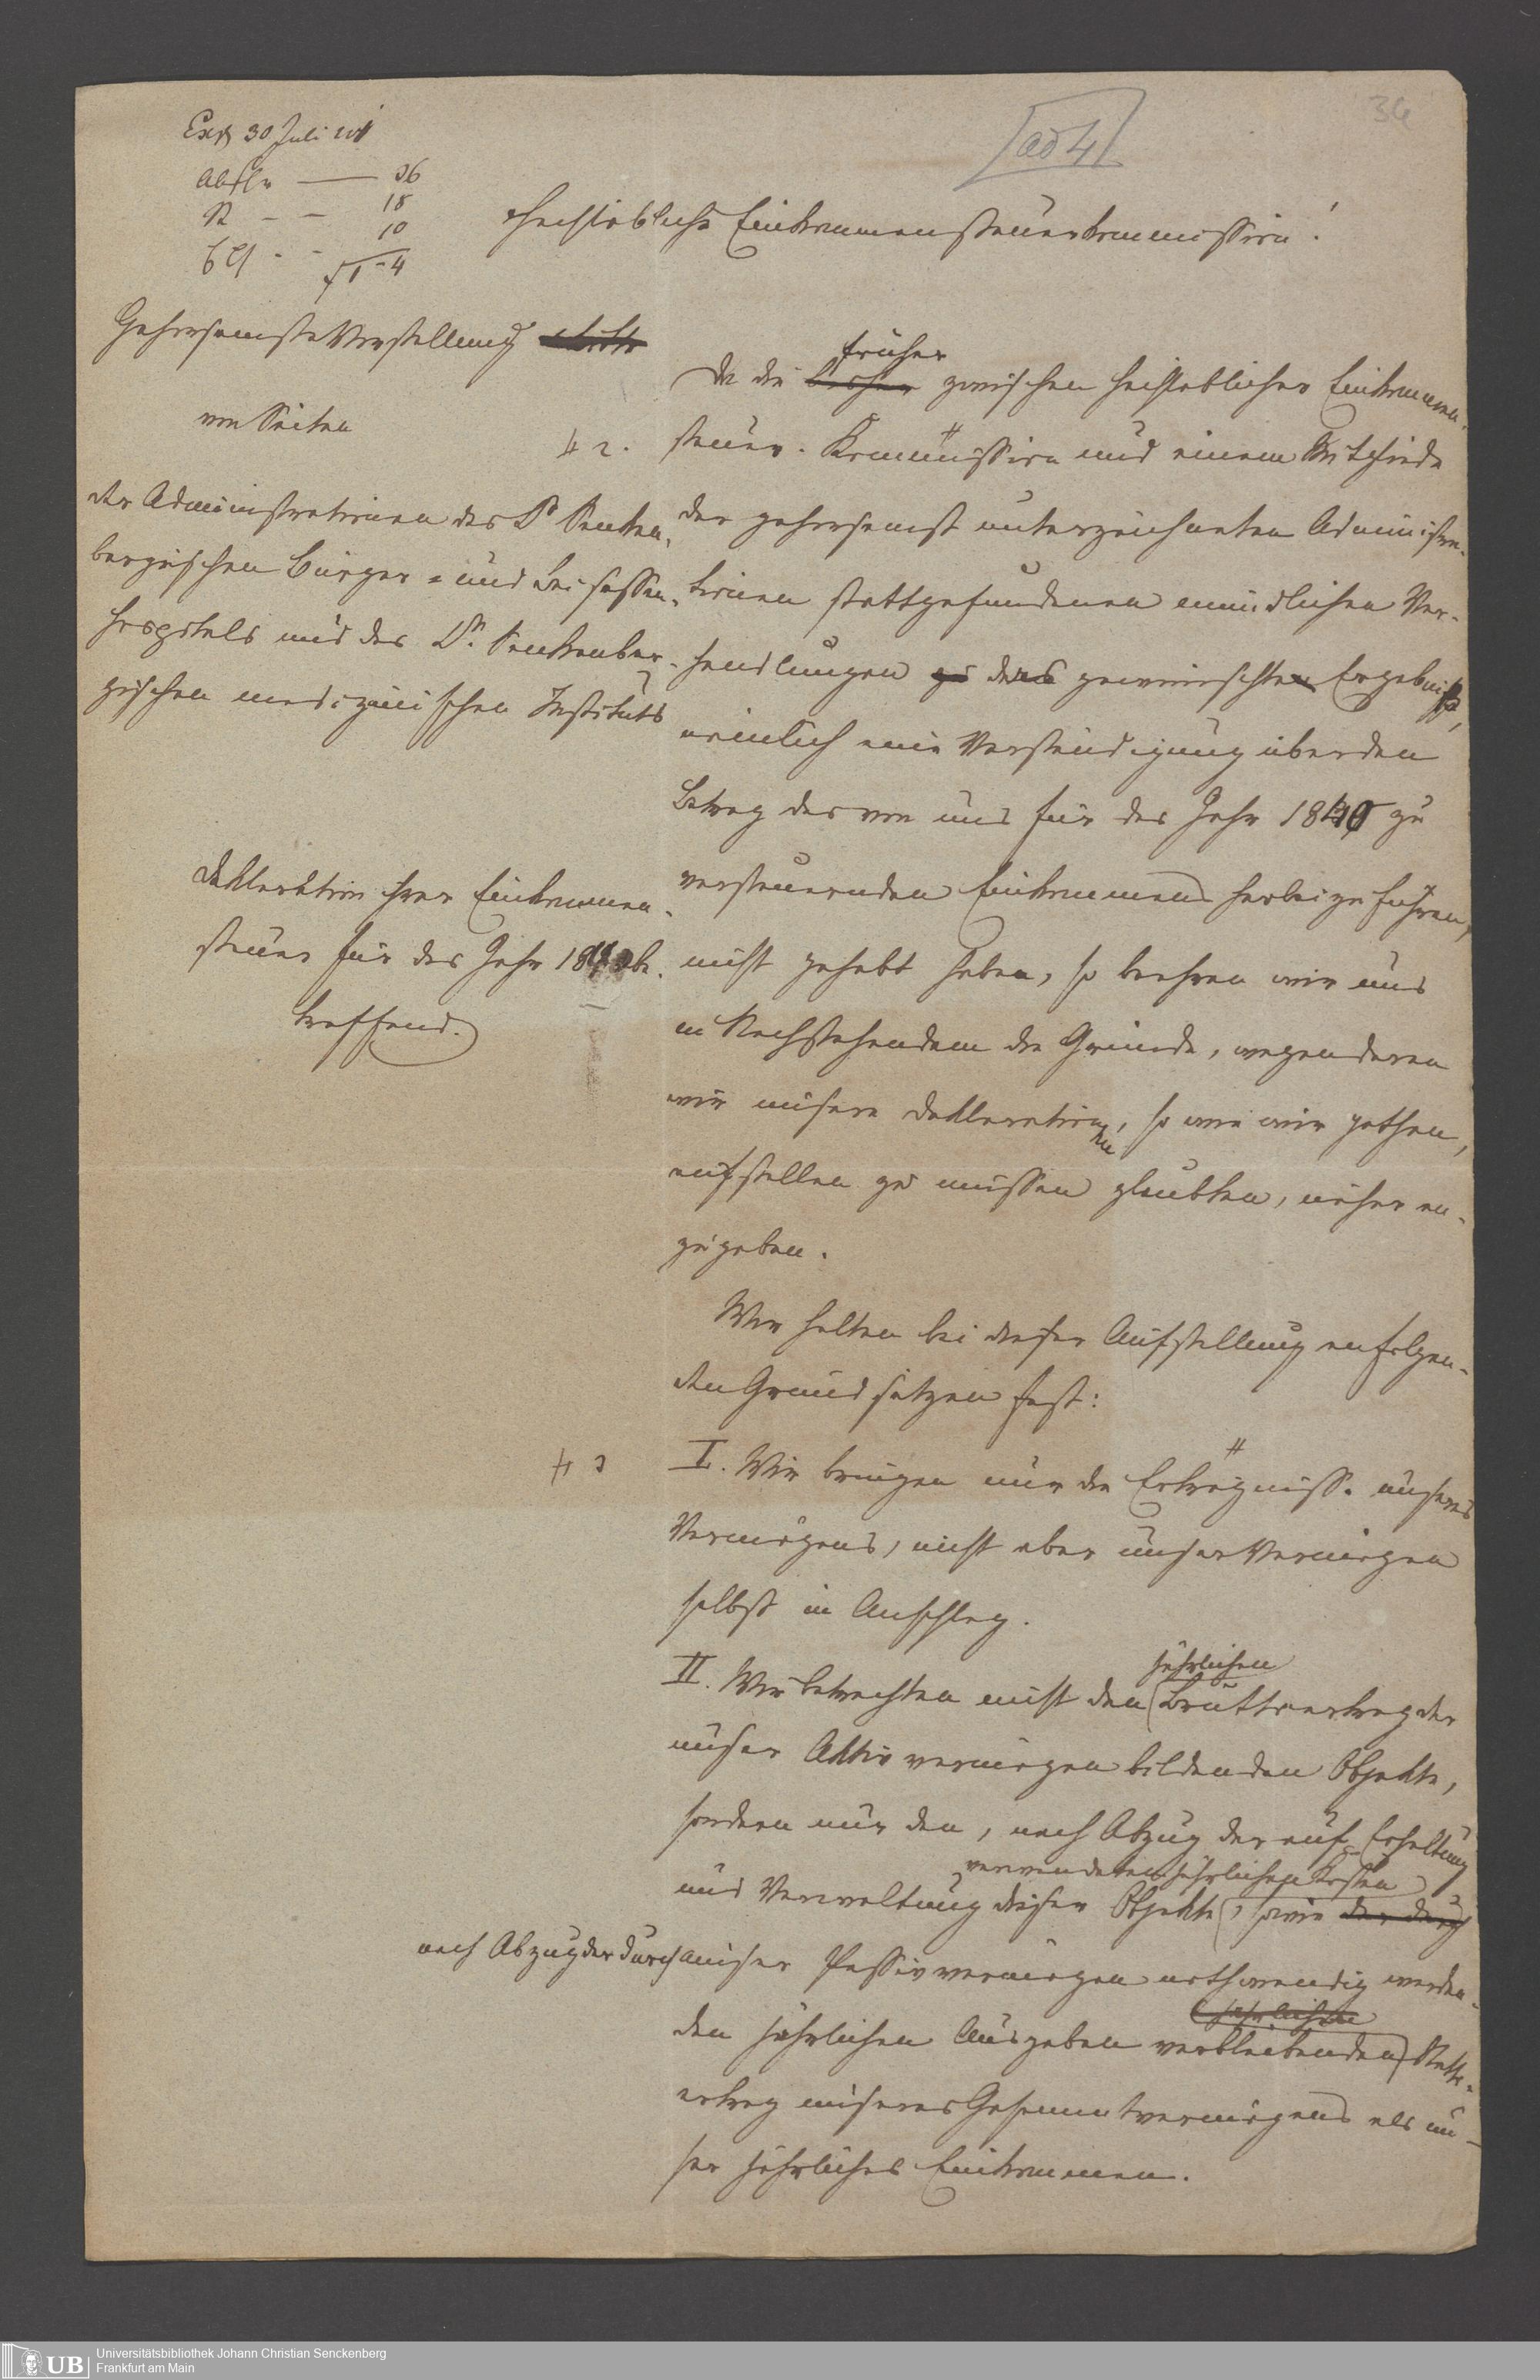 Exp 30 Juli
36
ad 4
Absch — 36
R — — 18
10
f 1-4
Hochlöbliche Einkommensteuerkommission!
Gehorsamste Vorstellung
von Seiten
der Administrationen des Dr Senken-
bergischen Bürger- und Beisassen-
hospitals und des Dr. Senkenber-
gischen medizinischen Instituts
Deklaration ihrer Einkommen-
steuer für das Jahr 1840 be-
treffend.
früher
Da die bisher zwischen hochlöblicher Einkommen-
# 2. steuer-Kommission und einem Mitgliede
der gehorsamst unterzeichneten Administra-
tionen stattgefundenen mündlichen Ver-
handlungen zu das gewünschte Ergebniß,
nämlich eine Verständigung über den
Betrag des von uns für das Jahr 1840 zu
versteuernden Einkommens herbeizuführen,
nicht gehabt haben, so beehren wir uns
in Nachstehendem die Gründe, wegen deren
wir unsere Deklaration, so wie wir gethan,
aufstellen zu müssen glaubten, näher an-
zugeben.
Wir halten bei dieser Aufstellung an folgen-
den Grundsätzen fest:
# 3 I. Wir bringen nur die Erträgnisse unseres
Vermögens, nicht aber unser Vermögen
selbst in Anschlag.
jährlichen
II. Wir betrachten nicht den Bruttoertrag der
unser Aktivvermögen bildenden Objekte,
sondern nur den, nach Abzug der auf Erhaltung
verwendeten jährlichen Kosten
und Verwaltung dieser Objekte, sowie der durch
nach Abzug der durch unser Passivvermögen nothwendig werden-
jährlichen
den jährlichen Ausgaben verbleibenden Netto-
ertrag unseres Gesammtvermögens als un-
ser jährliches Einkommen.
UB Universitätsbibliothek Johann Christian Senckenberg
Frankfurt am Main